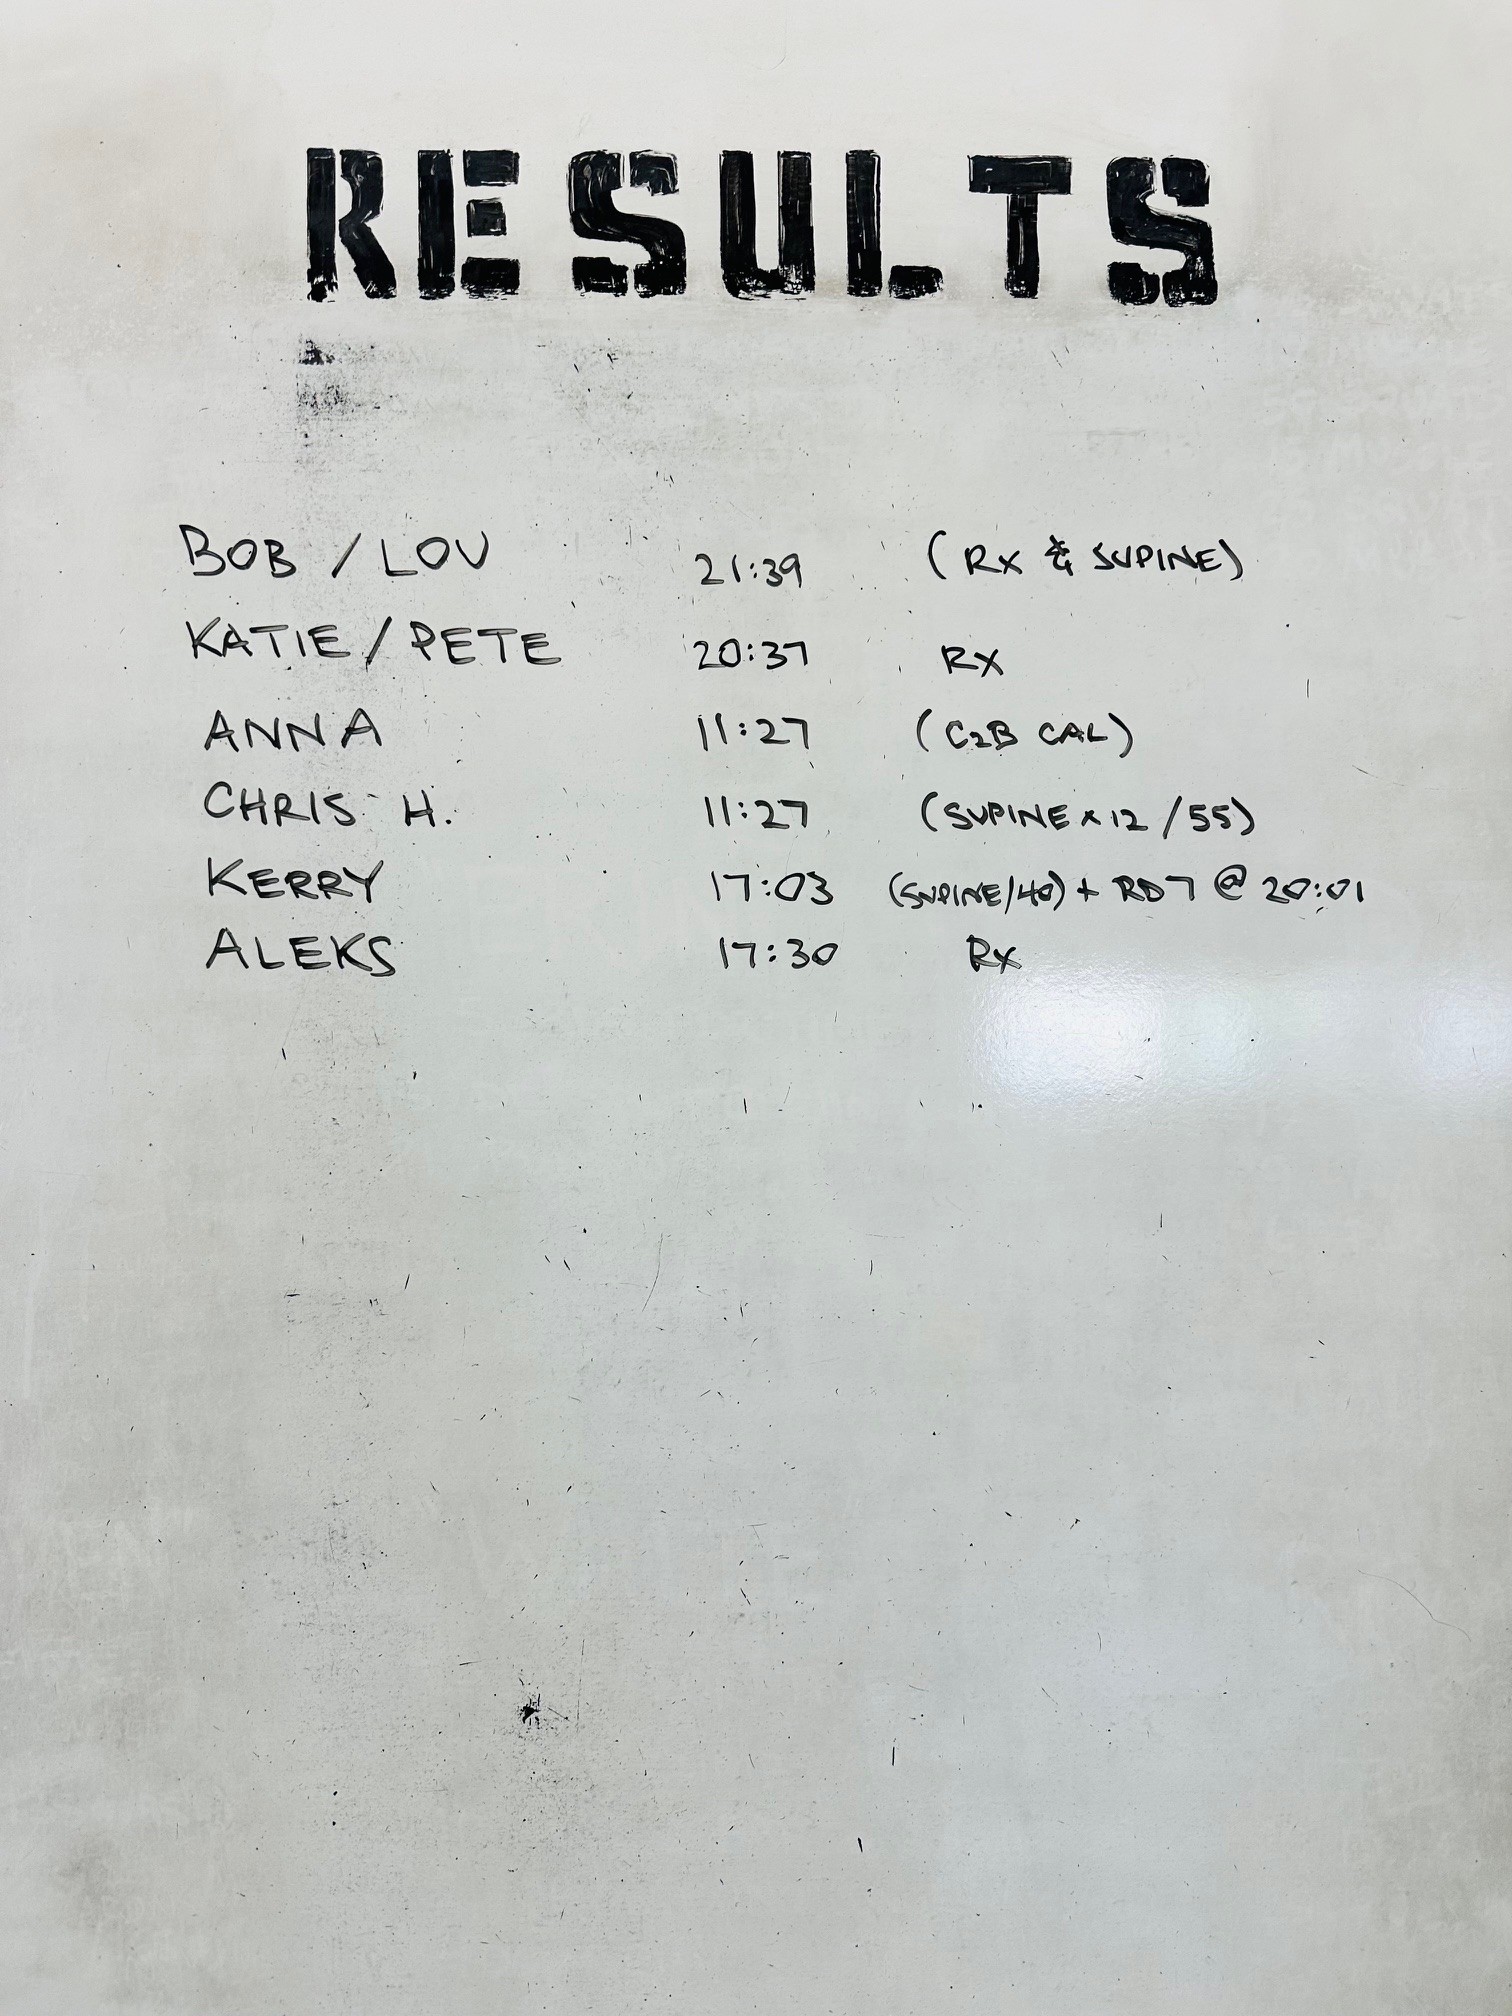 RESULTS
BOB / LOU 21:39 (RX & SUPINE)
KATIE / PETE 20:37 RX
ANNA 11:27 (C2B CAL)
CHRIS H. 11:27 (SUPINE x 12 / 55)
KERRY 17:03 (SUPINE/40) + RD 7 @ 20:01
ALEKS 17:30 Rx